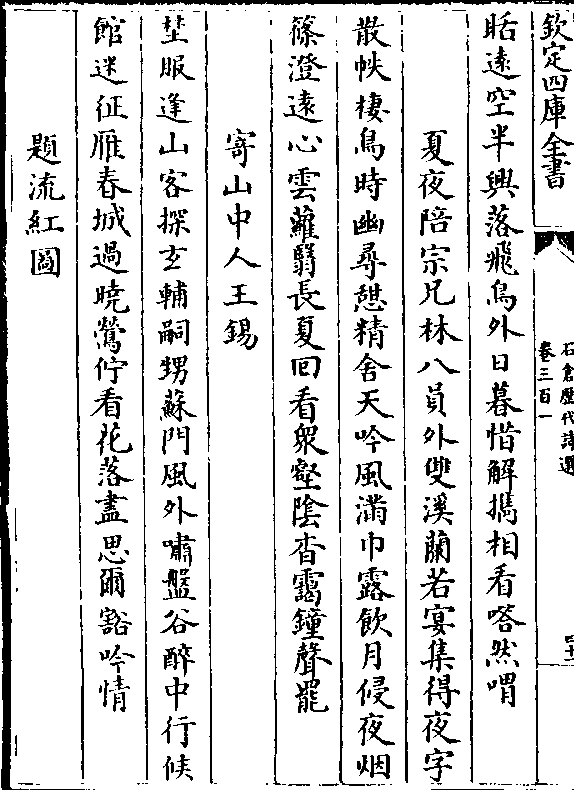 欽定四庫全書
石倉歷代詩選
卷三百一
四十一
眊遠空半興落飛鳥外日暮惜解攜相看嗒然喟
夏夜陪宗兄林八員外雙溪蘭若宴集得夜字
散帙棲鳥時幽尋憇精舍天吟風滿巾露飲月侵夜烟
篠澄遠心雲蘿翳長夏回看衆壑陰杳靄鐘聲罷
寄山中人王錫
埜服逢山客探玄輔嗣甥蘇門風外嘯盤谷醉中行候
館迷征雁春城過曉鶯佇看花落盡思爾豁吟情
題流紅圖